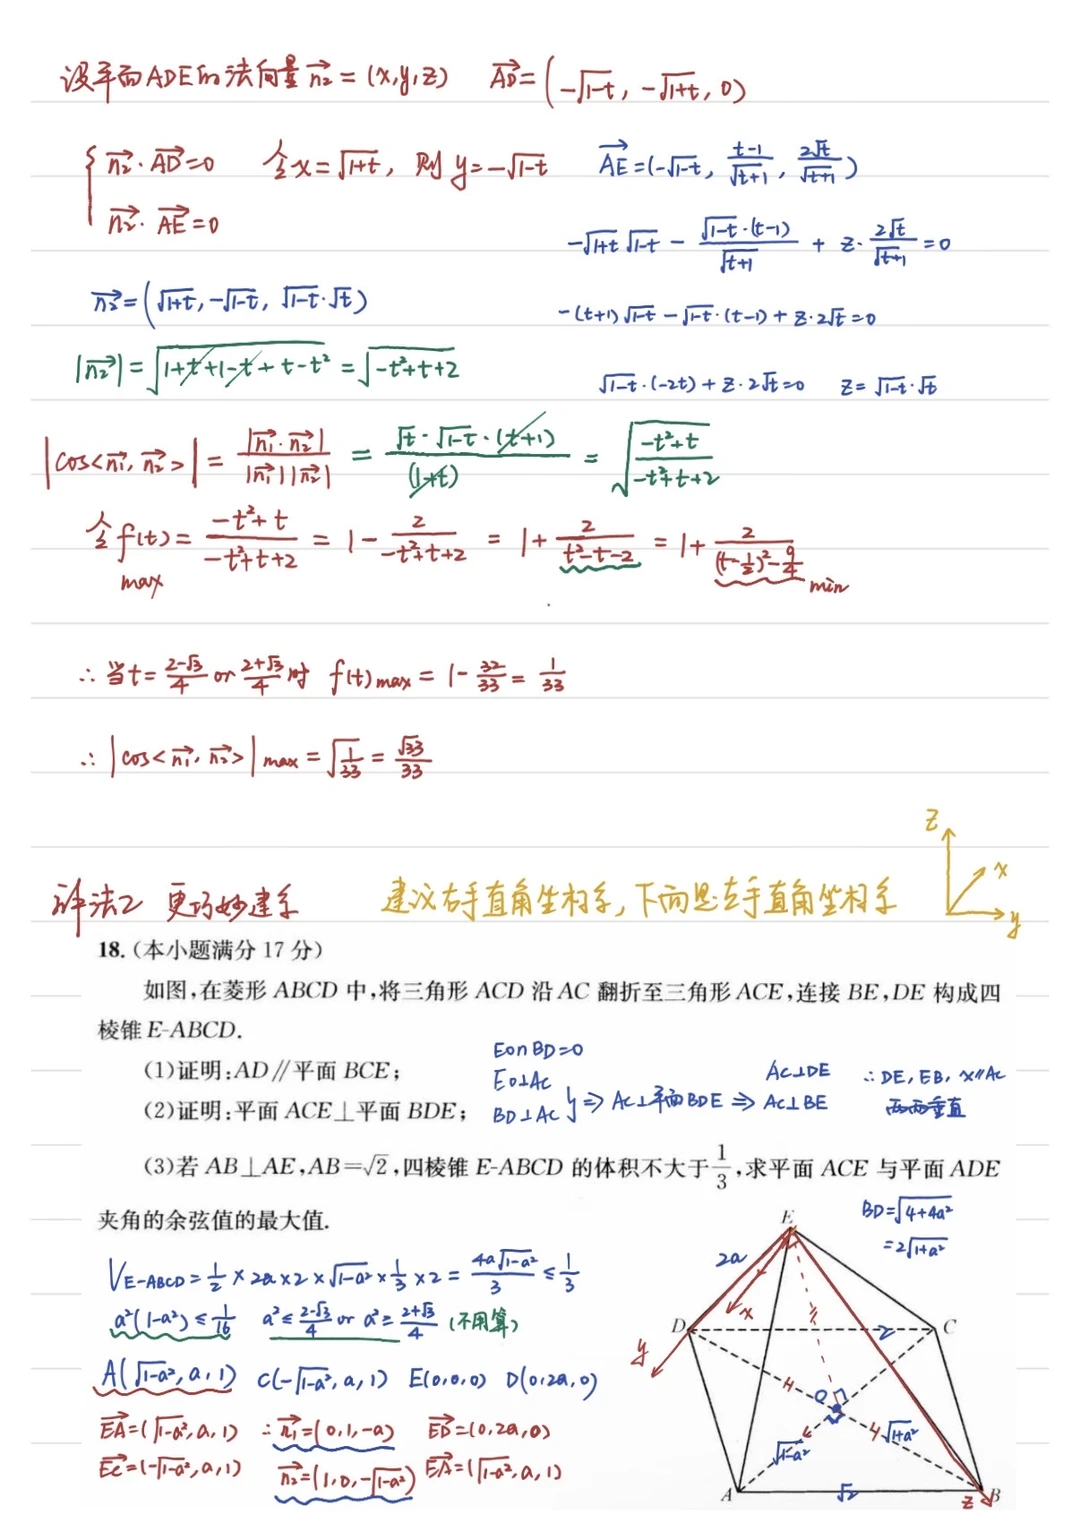 设平面ADE的法向量n₂⃗=(x,y,z) AD⃗=(-√(1-t), -√(1+t), 0)
{ n₂⃗·AD⃗=0 令x=√(1+t), 则y=-√(1-t) AE⃗=(-√(1-t), (t-1)/√(t+1), 2√t/√(t+1))
n₂⃗·AE⃗=0
-√(1+t)√(1-t) - √(1-t)·(t-1)/√(t+1) + z·2√t/√(t+1)=0
n₂⃗=(√(1+t), -√(1-t), √(1-t)·√t)
-(t+1)√(1-t)-√(1-t)·(t-1)+z·2√t=0
|n₂⃗|=√(1+t+1-t+t-t²)=√(-t²+t+2)
√(1-t)·(-2t)+z·2√t=0 z=√(1-t)·√t
|cos<n₁⃗,n₂⃗>|=|n₁⃗·n₂⃗|/|n₁⃗||n₂⃗|=√t·√(1-t)·(t+1)/(1+t)=√((-t²+t)/(-t²+t+2))
令f(t)=(-t²+t)/(-t²+t+2)=1-2/(-t²+t+2)=1+2/(t²-t-2)=1+2/((t-1/2)²-9/4)
max min
∴当t=(2-√3)/4 or (2+√3)/4时 f(t)max=1-32/33=1/33
∴|cos<n₁⃗,n₂⃗>|max=√(1/33)=√33/33
z
x
y
解法2 更巧妙建系 建议右手直角坐标系,下面是左手直角坐标系
18.(本小题满分17分)
如图,在菱形ABCD中,将三角形ACD沿AC翻折至三角形ACE,连接BE,DE构成四
棱锥E-ABCD.
(1)证明:AD∥平面BCE;
(2)证明:平面ACE⊥平面BDE;
EO∩BD=O
EO⊥AC
BD⊥AC } ⇒ AC⊥平面BDE ⇒ AC⊥DE
AC⊥BE
∴DE, EB, x∥AC
两两垂直
(3)若AB⊥AE,AB=√2,四棱锥E-ABCD的体积不大于1/3,求平面ACE与平面ADE
夹角的余弦值的最大值.
V E-ABCD=1/2×2a×2×√(1-a²)×1/3×2=4a√(1-a²)/3≤1/3
a²(1-a²)≤1/16 a²≤(2-√3)/4 or a²≥(2+√3)/4 (不用算)
A(√(1-a²),a,1) C(-√(1-a²),a,1) E(0,0,0) D(0,2a,0)
EA⃗=(√(1-a²),a,1) ∴n₁⃗=(0,1,-a) ED⃗=(0,2a,0)
EC⃗=(-√(1-a²),a,1) n₂⃗=(1,0,-√(1-a²)) EA⃗=(√(1-a²),a,1)
BD=√(4+4a²)
=2√(1+a²)
E
2a
x
D
2
C
y
O
√(1+a²)
√(1-a²)
A
√2
z
B